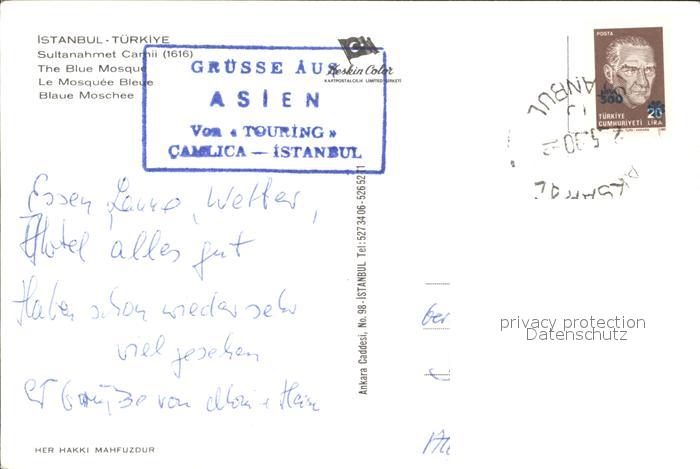 İSTANBUL - TÜRKİYE
Sultanahmet Camii (1616)
The Blue Mosque
Le Mosquée Bleue
Blaue Moschee
Keskin Color
KARTPOSTALCILIK LIMITED ŞİRKETİ
GRÜSSE AUS
ASIEN
Von « TOURING »
ÇAMLICA — İSTANBUL
POSTA
500
20
TÜRKİYE
CUMHURİYETİ LİRA
Essen, Laune, Wetter,
Hotel alles gut
Haben schon wieder sehr
viel gesehen
Grüße von
Ankara Caddesi, No. 98-İSTANBUL Tel: 5273406-5265271
privacy protection
Datenschutz
HER HAKKI MAHFUZDUR